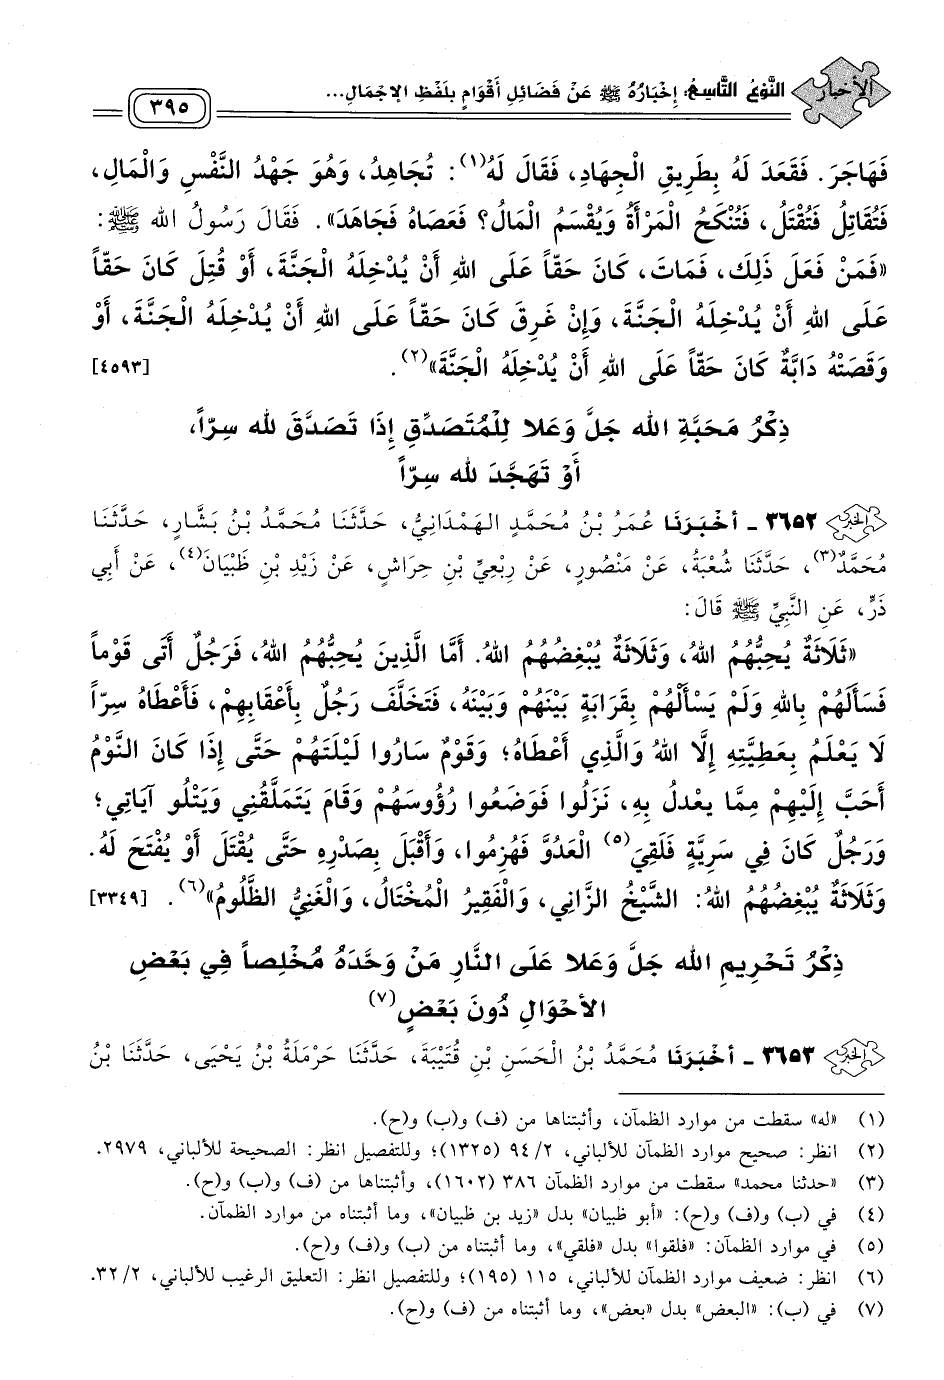 الأخبار
النَّوْعُ التَّاسِعُ: إِخْبَارُهُ ﷺ عَنْ فَضَائِلِ أَقْوَامٍ بِلَفْظِ الإِجْمَالِ...
٣٩٥
فَهَاجَرَ. فَقَعَدَ لَهُ بِطَرِيقِ الْجِهَادِ، فَقَالَ لَهُ(١): تُجَاهِدُ، وَهُوَ جَهْدُ النَّفْسِ وَالْمَالِ،
فَتُقَاتِلُ فَتُقْتَلُ، فَتُنْكَحُ الْمَرْأَةُ وَيُقْسَمُ الْمَالُ؟ فَعَصَاهُ فَجَاهَدَ». فَقَالَ رَسُولُ الله ﷺ:
«فَمَنْ فَعَلَ ذَلِكَ، فَمَاتَ، كَانَ حَقّاً عَلَى اللهِ أَنْ يُدْخِلَهُ الْجَنَّةَ، أَوْ قُتِلَ كَانَ حَقّاً
عَلَى اللهِ أَنْ يُدْخِلَهُ الْجَنَّةَ، وَإِنْ غَرِقَ كَانَ حَقّاً عَلَى اللهِ أَنْ يُدْخِلَهُ الْجَنَّةَ، أَوْ
وَقَصَتْهُ دَابَّةٌ كَانَ حَقّاً عَلَى اللهِ أَنْ يُدْخِلَهُ الْجَنَّةَ»(٢). [٤٥٩٣]
ذِكْرُ مَحَبَّةِ الله جَلَّ وَعَلا لِلْمُتَصَدِّقِ إِذَا تَصَدَّقَ لله سِرّاً،
أَوْ تَهَجَّدَ لله سِرّاً
٣٦٥٢ - أَخْبَرَنَا عُمَرُ بْنُ مُحَمَّدٍ الهَمْدَانِيُّ، حَدَّثَنَا مُحَمَّدُ بْنُ بَشَّارٍ، حَدَّثَنَا
مُحَمَّدٌ(٣)، حَدَّثَنَا شُعْبَةُ، عَنْ مَنْصُورٍ، عَنْ رِبْعِيِّ بْنِ حِرَاشٍ، عَنْ زَيْدِ بْنِ ظَبْيَانَ(٤)، عَنْ أَبِي
ذَرٍّ، عَنِ النَّبِيِّ ﷺ قَالَ:
«ثَلَاثَةٌ يُحِبُّهُمُ اللهُ، وَثَلَاثَةٌ يُبْغِضُهُمُ اللهُ. أَمَّا الَّذِينَ يُحِبُّهُمُ اللهُ، فَرَجُلٌ أَتَى قَوْماً
فَسَأَلَهُمْ بِاللهِ وَلَمْ يَسْأَلْهُمْ بِقَرَابَةٍ بَيْنَهُمْ وَبَيْنَهُ، فَتَخَلَّفَ رَجُلٌ بِأَعْقَابِهِمْ، فَأَعْطَاهُ سِرّاً
لَا يَعْلَمُ بِعَطِيَّتِهِ إِلَّا اللهُ وَالَّذِي أَعْطَاهُ؛ وَقَوْمٌ سَارُوا لَيْلَتَهُمْ حَتَّى إِذَا كَانَ النَّوْمُ
أَحَبَّ إِلَيْهِمْ مِمَّا يعْدلُ بِهِ، نَزَلُوا فَوَضَعُوا رُؤُوسَهُمْ وَقَامَ يَتَمَلَّقُنِي وَيَتْلُو آيَاتِي؛
وَرَجُلٌ كَانَ فِي سَرِيَّةٍ فَلَقِيَ(٥) الْعَدُوَّ فَهُزِمُوا، وَأَقْبَلَ بِصَدْرِهِ حَتَّى يُقْتَلَ أَوْ يُفْتَحَ لَهُ.
وَثَلَاثَةٌ يُبْغِضُهُمُ اللهُ: الشَّيْخُ الزَّانِي، وَالْفَقِيرُ الْمُخْتَالُ، وَالْغَنِيُّ الظَّلُومُ»(٦). [٣٣٤٩]
ذِكْرُ تَحْرِيمِ الله جَلَّ وَعَلا عَلَى النَّارِ مَنْ وَحَّدَهُ مُخْلِصاً فِي بَعْضِ
الأَحْوَالِ دُونَ بَعْضٍ(٧)
٣٦٥٣ - أَخْبَرَنَا مُحَمَّدُ بْنُ الْحَسَنِ بْنِ قُتَيْبَةَ، حَدَّثَنَا حَرْمَلَةُ بْنُ يَحْيَى، حَدَّثَنَا بْنُ
(١) «له» سقطت من موارد الظمآن، وأثبتناها من (ف) و(ب) و(ح).
(٢) انظر: صحيح موارد الظمآن للألباني، ٢/ ٩٤ (١٣٢٥)؛ وللتفصيل انظر: الصحيحة للألباني، ٢٩٧٩.
(٣) «حدثنا محمد» سقطت من موارد الظمآن ٣٨٦ (١٦٠٢)، وأثبتناها من (ف) و(ب) و(ح).
(٤) في (ب) و(ف) و(ح): «أبو ظبيان» بدل «زيد بن ظبيان»، وما أثبتناه من موارد الظمآن.
(٥) في موارد الظمآن: «فلقوا» بدل «فلقي»، وما أثبتناه من (ب) و(ف) و(ح).
(٦) انظر: ضعيف موارد الظمآن للألباني، ١١٥ (١٩٥)؛ وللتفصيل انظر: التعليق الرغيب للألباني، ٢/ ٣٢.
(٧) في (ب): «البعض» بدل «بعض»، وما أثبتناه من (ف) و(ح).